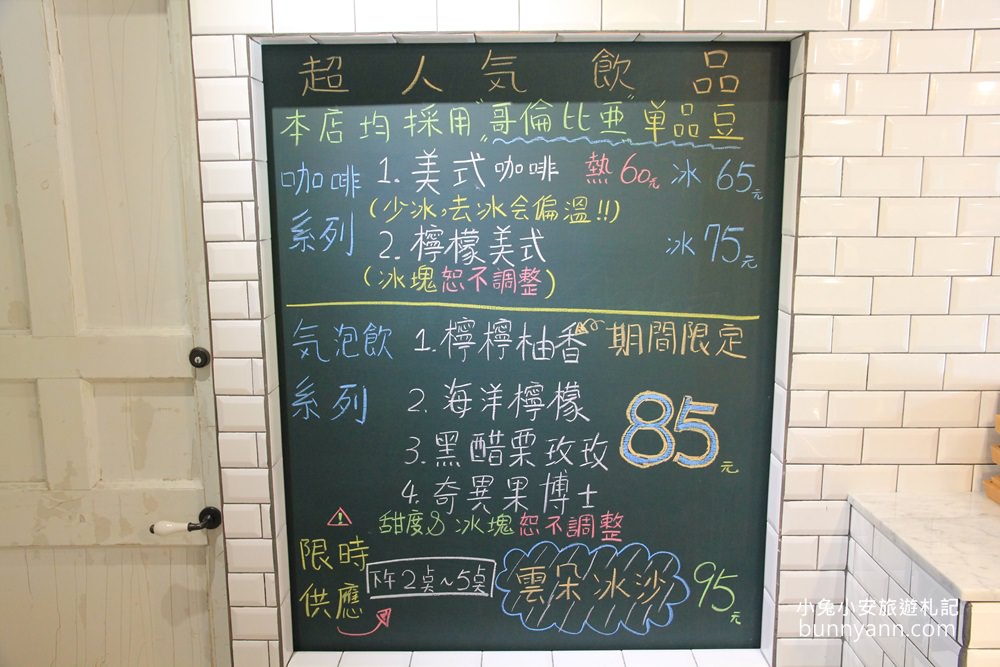 超人気飲品
本店均採用"哥倫比亜"単品豆
咖啡系列
1. 美式咖啡 熱60元 冰65元
(少冰,去冰会偏溫!!)
2. 檸檬美式 冰75元
(冰塊恕不調整)
気泡飲系列
1. 檸檸柚香 期間限定
2. 海洋檸檬
3. 黑醋栗玫玫
4. 奇異果博士
85元
甜度&冰塊恕不調整
限時供應
下午2点~5点
雲朵冰沙 95元
小兔小安旅遊札記
bunnyann.com